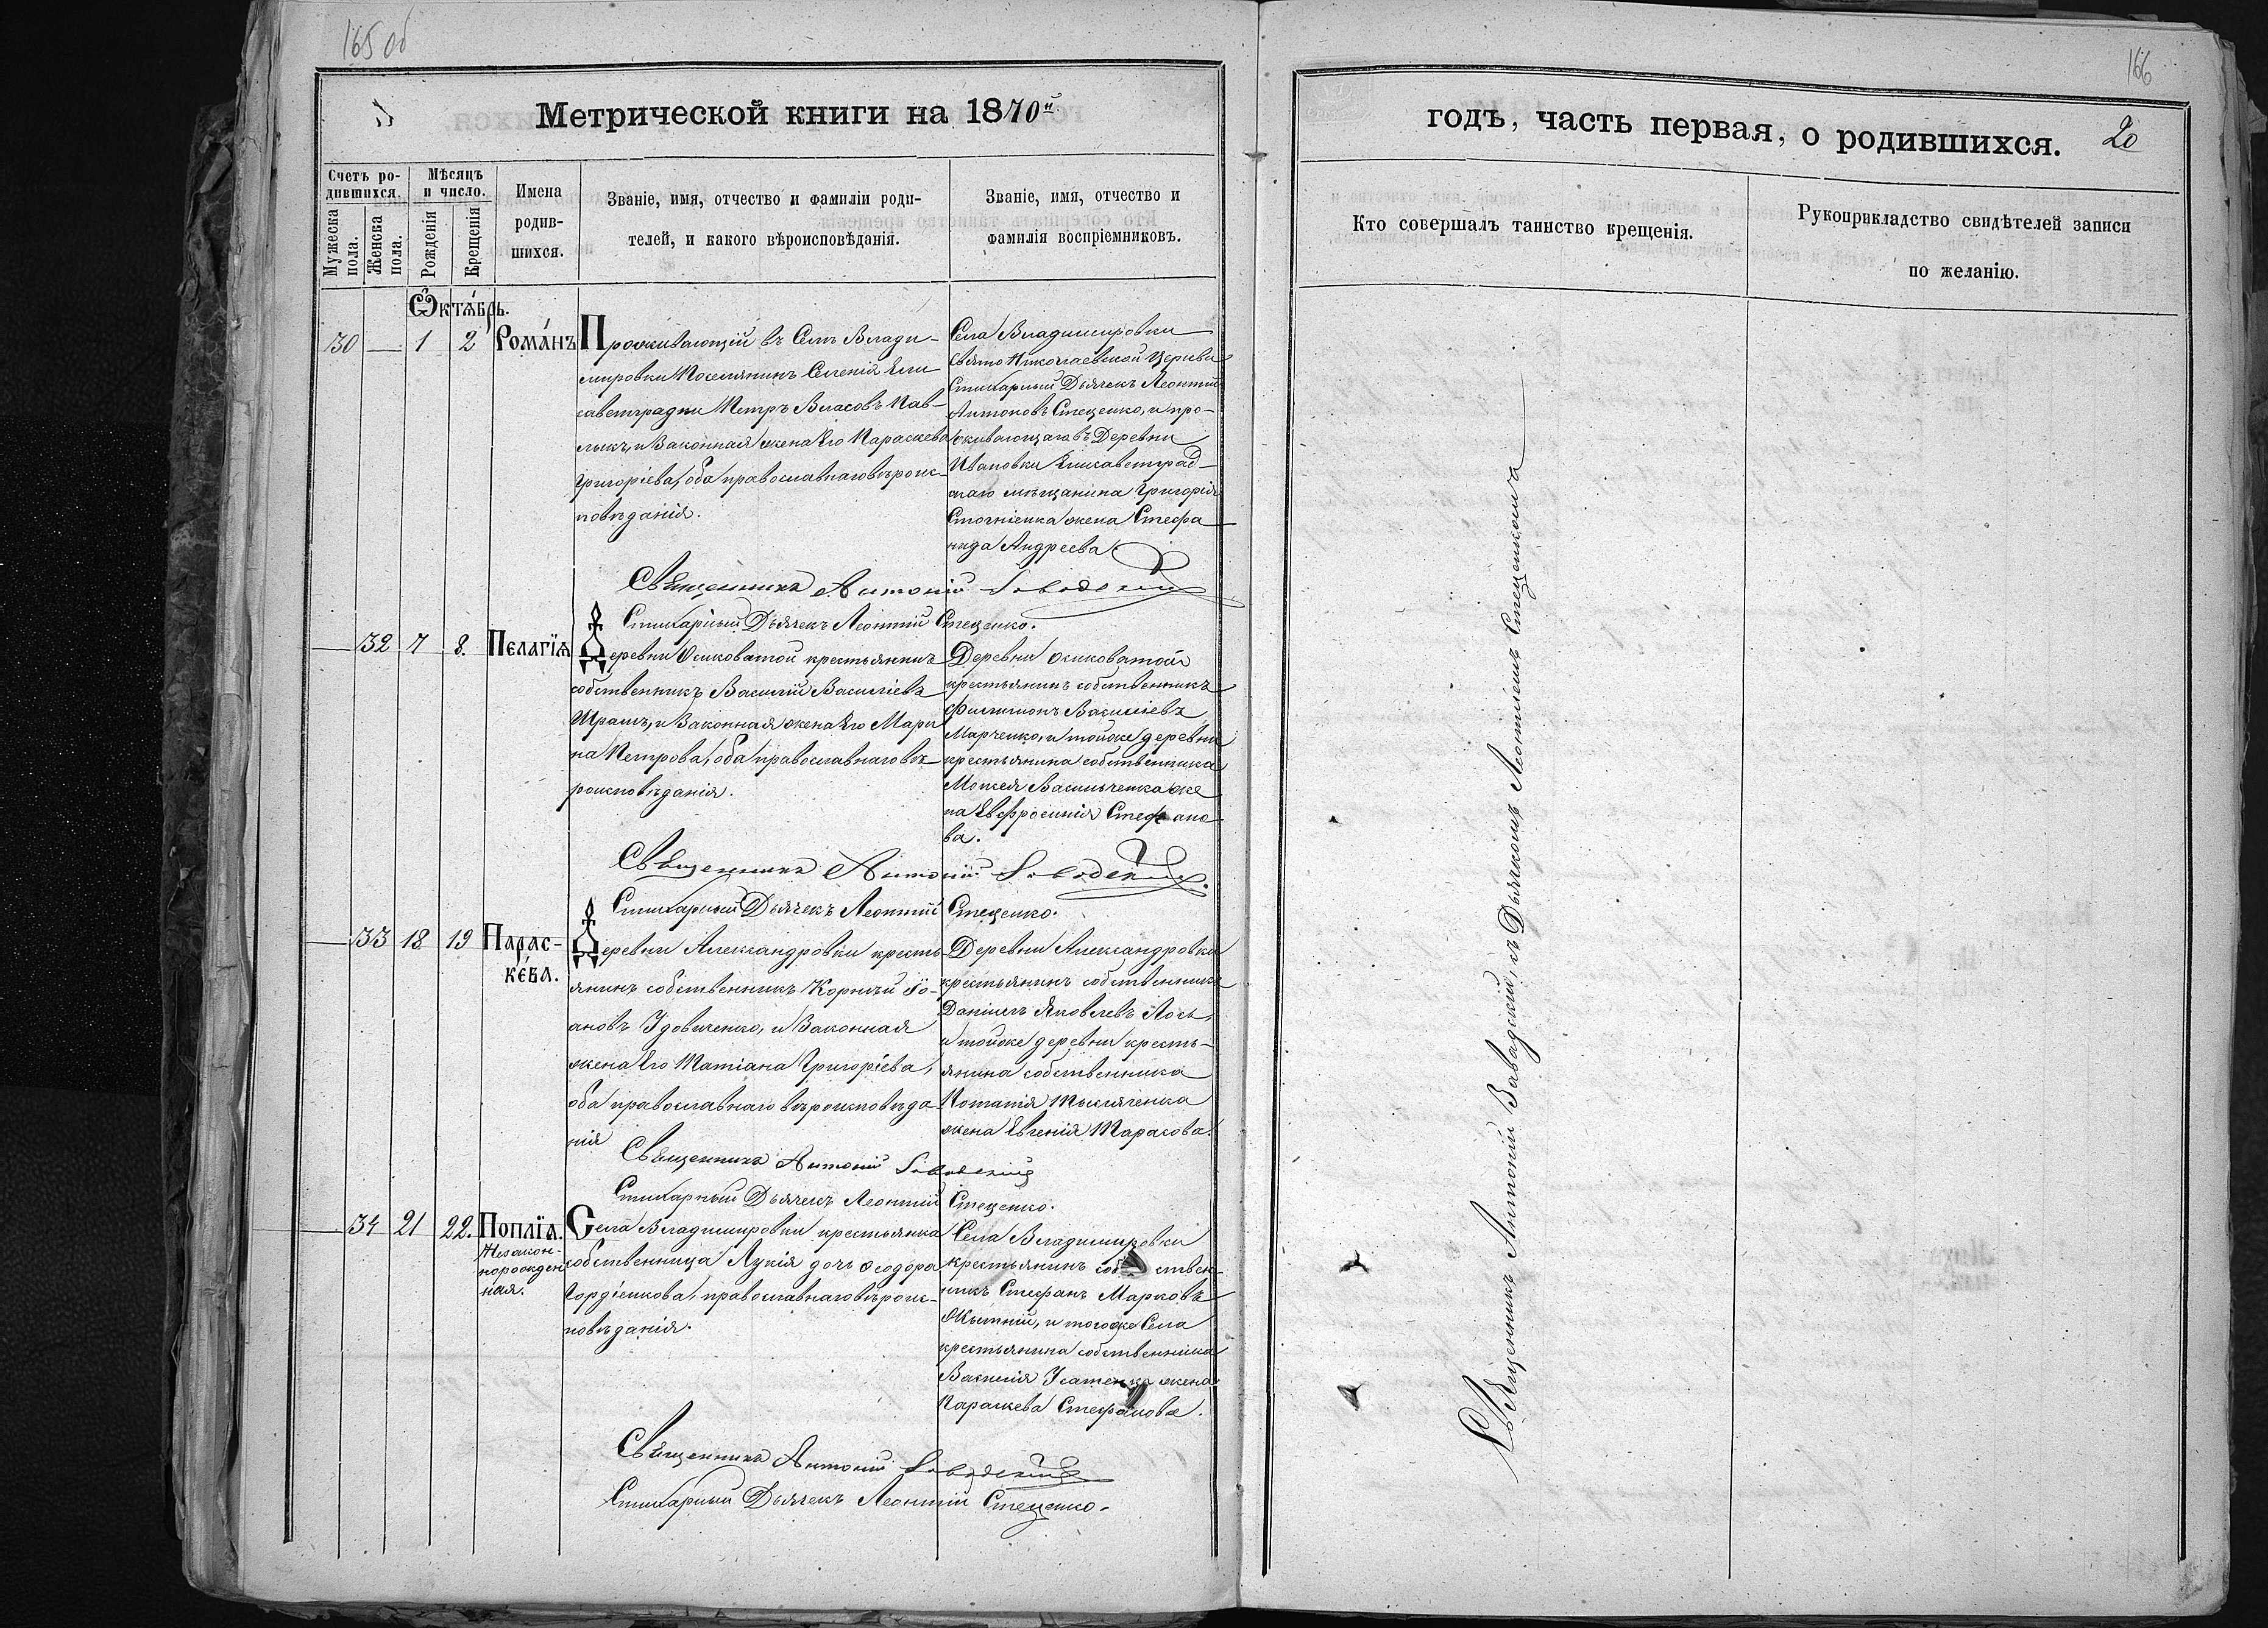 165 об
Метрической книги на 1870й
Счетъ ро-
дившихся.
Мѣсяцъ
и число.
Мужеска
пола.
Женска
пола.
Рожденія
Крещенія
Имена
родив-
шихся.
Званіе, имя, отчество и фамиліи роди-
телей, и какого вѣроисповѣданія.
Званіе, имя, отчество и
фамилія воспріемниковъ.
Ѻктѧ́брь.
30 — 1 2 Рома́нъ
Проживающій въ Селѣ Влади-
мировки Поселянинъ Селенія Ели
саветградки Петръ Власовъ Пав-
лыкъ, и Законная жена Его Параскева
Григоріева, оба православнаго вѣроис-
повѣданія.
Села Владимировки
Свято Николаевской Церкви
Стихарный Дьячекъ Леонтій
Антоновъ Стеценко, и про-
живающаго въ Деревни
Ивановки Елисаветград-
скаго мѣщанина Григорія
жена Стефа
нида Андреева.
Священникъ Антоній Заводскій
Стихарный Дьячекъ Леонтій Стеценко.
— 32 7 8. Пелагїѧ
Деревни Осиковатой крестьянинъ
собственникъ Василій Василіевъ
Шрамъ, и Законная жена Его Мари
на Петрова, оба православнаго вѣ-
роисповѣданія.
Деревни Осиковатой
крестьянинъ собственникъ
Филимонъ Василіевъ
Марченко, и тойже деревни
крестьянина собственника
Моисея Васильченка же
на Евфросинія Стефано
ва.
Священникъ Антоній Заводскій.
Стихарный Дьячекъ Леонтій Стеценко.
— 33 18 19 Парас-
ке́ва.
Деревни Александровки кресть
янинъ собственникъ Корнилій Іо-
ановъ Удовиченко, и Законная
жена Его Татіана Григоріева,
оба православнаго вѣроисповѣда
нія
Деревни Александровки
крестьянинъ собственникъ
Даніилъ Яковлевъ Лось,
и тойже деревни кресть-
янина собственника
Потапія Тысяченка
жена Евгенія Тарасова.
Священникъ Антоній Заводскій
Стихарный Дьячекъ Леонтій Стеценко.
— 34 21 22. Поплїѧ.
Незакон-
норожден
ная.
Села Владимировки крестьянка
собственница Лукія дочь Ѳеодора
Гордіенкова, православнаго вѣроис-
повѣданія.
Села Владимировки
крестьянинъ собственникъ
никъ Стефанъ Марковъ
Жытній, и тогоже Села
крестьянина собственника
Василія Усатенка жена
Параскева Стефанова.
Священникъ Антоній Заводскій
Стихарный Дьячекъ Леонтій Стеценко.
166
годъ, часть первая, о родившихся. 20
Кто совершалъ таинство крещенія.
Рукоприкладство свидѣтелей записи
по желанію.
Священникъ Антоній Завадскій, съ Дьячкомъ Леонтіемъ Стеценкомъ